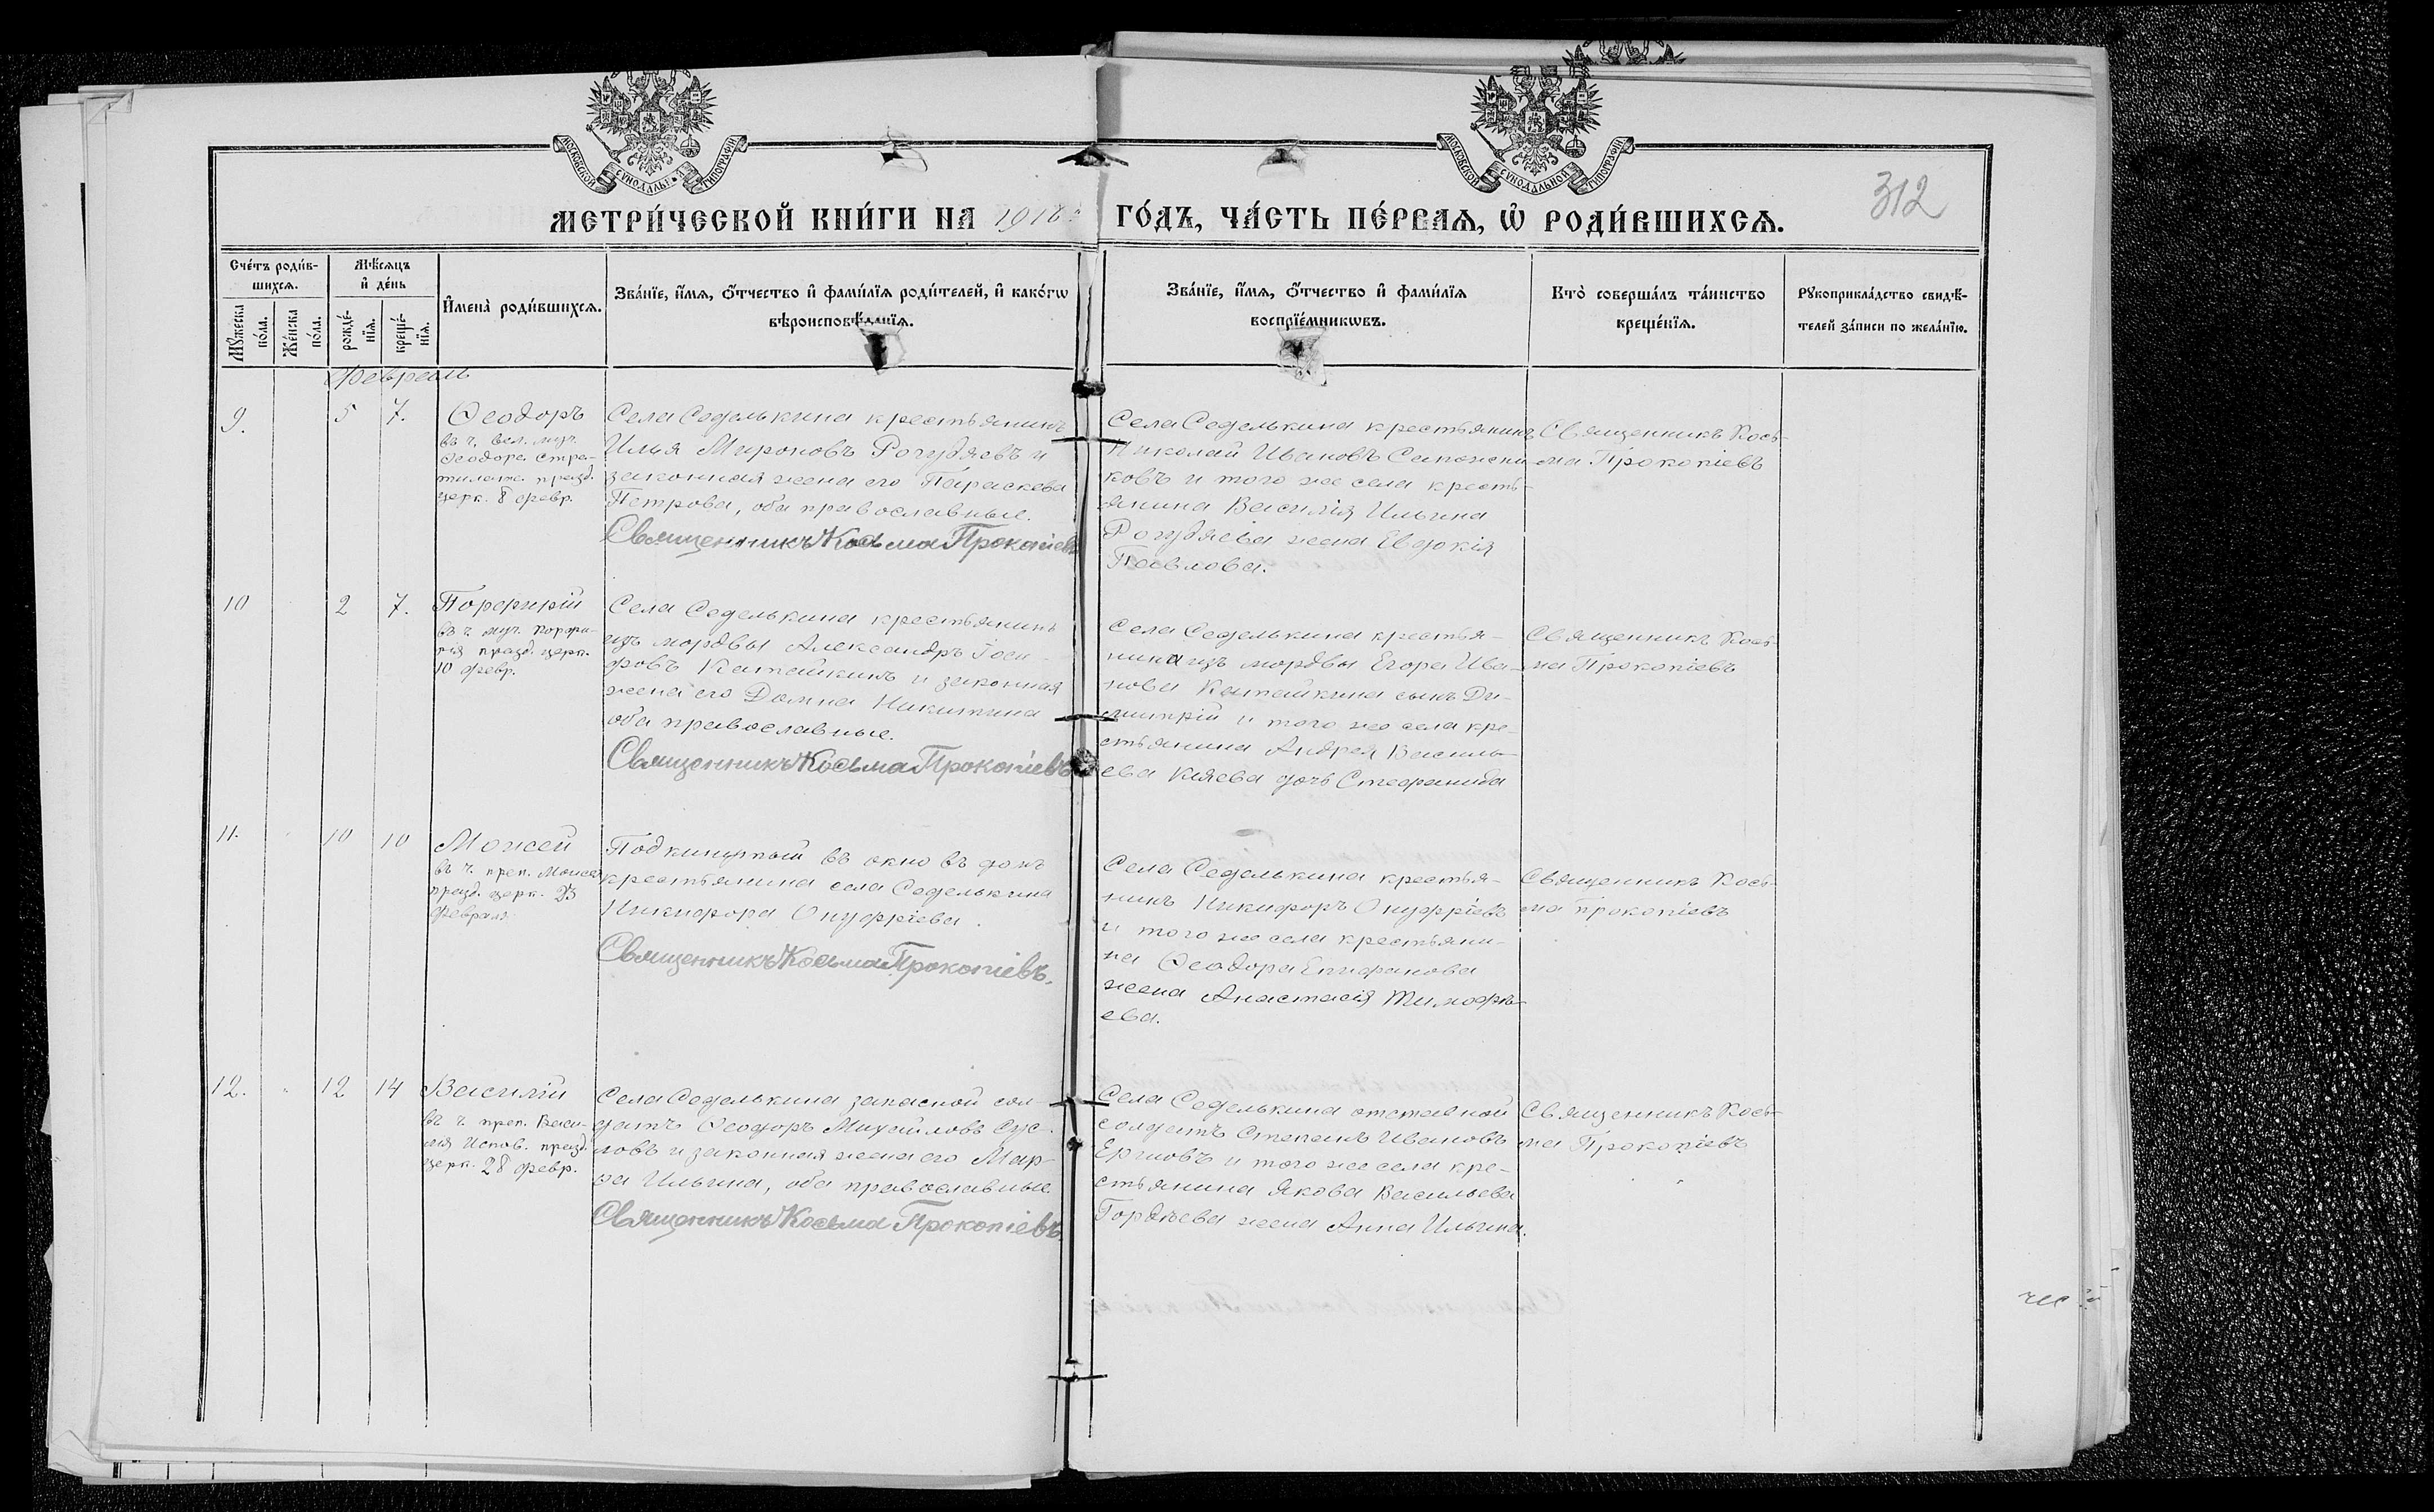 МОСКОВСКОЙ СѴНОДАЛЬНОЙ ТИПОГРАФІИ
МОСКОВСКОЙ СѴНОДАЛЬНОЙ ТИПОГРАФІИ
312
МЕТРИ́ЧЕСКОЙ КНИ́ГИ НА 1918 ГО́ДЪ, ЧА́СТЬ ПЕ́РВАѦ, Ѡ҆ РОДИ́ВШИХСѦ.
Сче́тъ роди́в-
шихсѧ.
Мꙋ́жеска
по́ла.
Же́нска
по́ла.
Мѣ́сѧцъ
и҆ де́нь
рожде́-
нїѧ.
креще́-
нїѧ.
И҆мена̀ роди́вшихсѧ.
Зва́нїе, и҆́мѧ, ѻ҆́тчество и҆ фами́лїѧ роди́телей, и҆ како́гѡ
вѣроисповѣ́данїѧ.
Зва́нїе, и҆́мѧ, ѻ҆́тчество и҆ фами́лїѧ
воспрїе́мникѡвъ.
Кто̀ соверша́лъ та́инство
креще́нїѧ.
Рꙋкоприкла́дство свидѣ́-
телей за́писи по жела́нїю.
Февраль
9.
5
7.
Ѳеодоръ
въ ч. вел. муч.
Ѳеодора Стра-
тилата. празд.
церк. 8 февр.
Села Седелькина крестьянинъ
Илья Мироновъ Рогудяевъ и
законная жена его Параскева
Петрова, оба православные.
Священникъ Косьма Прокопіевъ
Села Седелькина крестьянинъ
Николай Ивановъ Сапожни-
ковъ и того же села кресть-
янина Василія Ильина
Рогудяева жена Евдокія
Павлова.
Священникъ Кось-
ма Прокопіевъ
10
2
7.
Порфирій
въ ч. муч. Порфи-
рія празд. церк.
10 февр.
Села Седелькина крестьянинъ
изъ мордвы Александръ Іоси-
фовъ Катайкинъ и законная
жена его Домна Никитина
оба православные.
Священникъ Косьма Прокопіевъ
Села Седелькина крестья-
нина изъ мордвы Егора Ива-
нова Катайкина сынъ Ди-
митрій и того же села кре-
стьянина Андрея Василь-
ева Кияева дочь Стефанида
Священникъ Кось-
ма Прокопіевъ
11.
10
10
Моисей
въ ч. преп. Моисея
празд. церк. 23
февраля
Подкинутый въ окно въ домъ
крестьянина села Седелькина
Никифора Онуфріева.
Священникъ Косьма Прокопіевъ.
Села Седелькина крестья-
нинъ Никифоръ Онуфріевъ
и того же села крестьяни-
на Ѳеодора Епифанова
жена Анастасія Тимофѣ-
ева.
Священникъ Кось-
ма Прокопіевъ
12.
12
14
Василій
въ ч. преп. Васи-
лія Испов. празд.
церк. 28 февр.
Села Седелькина запасной сол-
датъ Ѳеодоръ Михайловъ Сус-
ловъ и законная жена его Мар-
ѳа Ильина, оба православные
Священникъ Косьма Прокопіевъ.
Села Седелькина отставной
солдатъ Степанъ Ивановъ
и того же села кре-
стьянина Якова Васильева
Гордѣева жена Анна Ильина.
Священникъ Кось-
ма Прокопіевъ